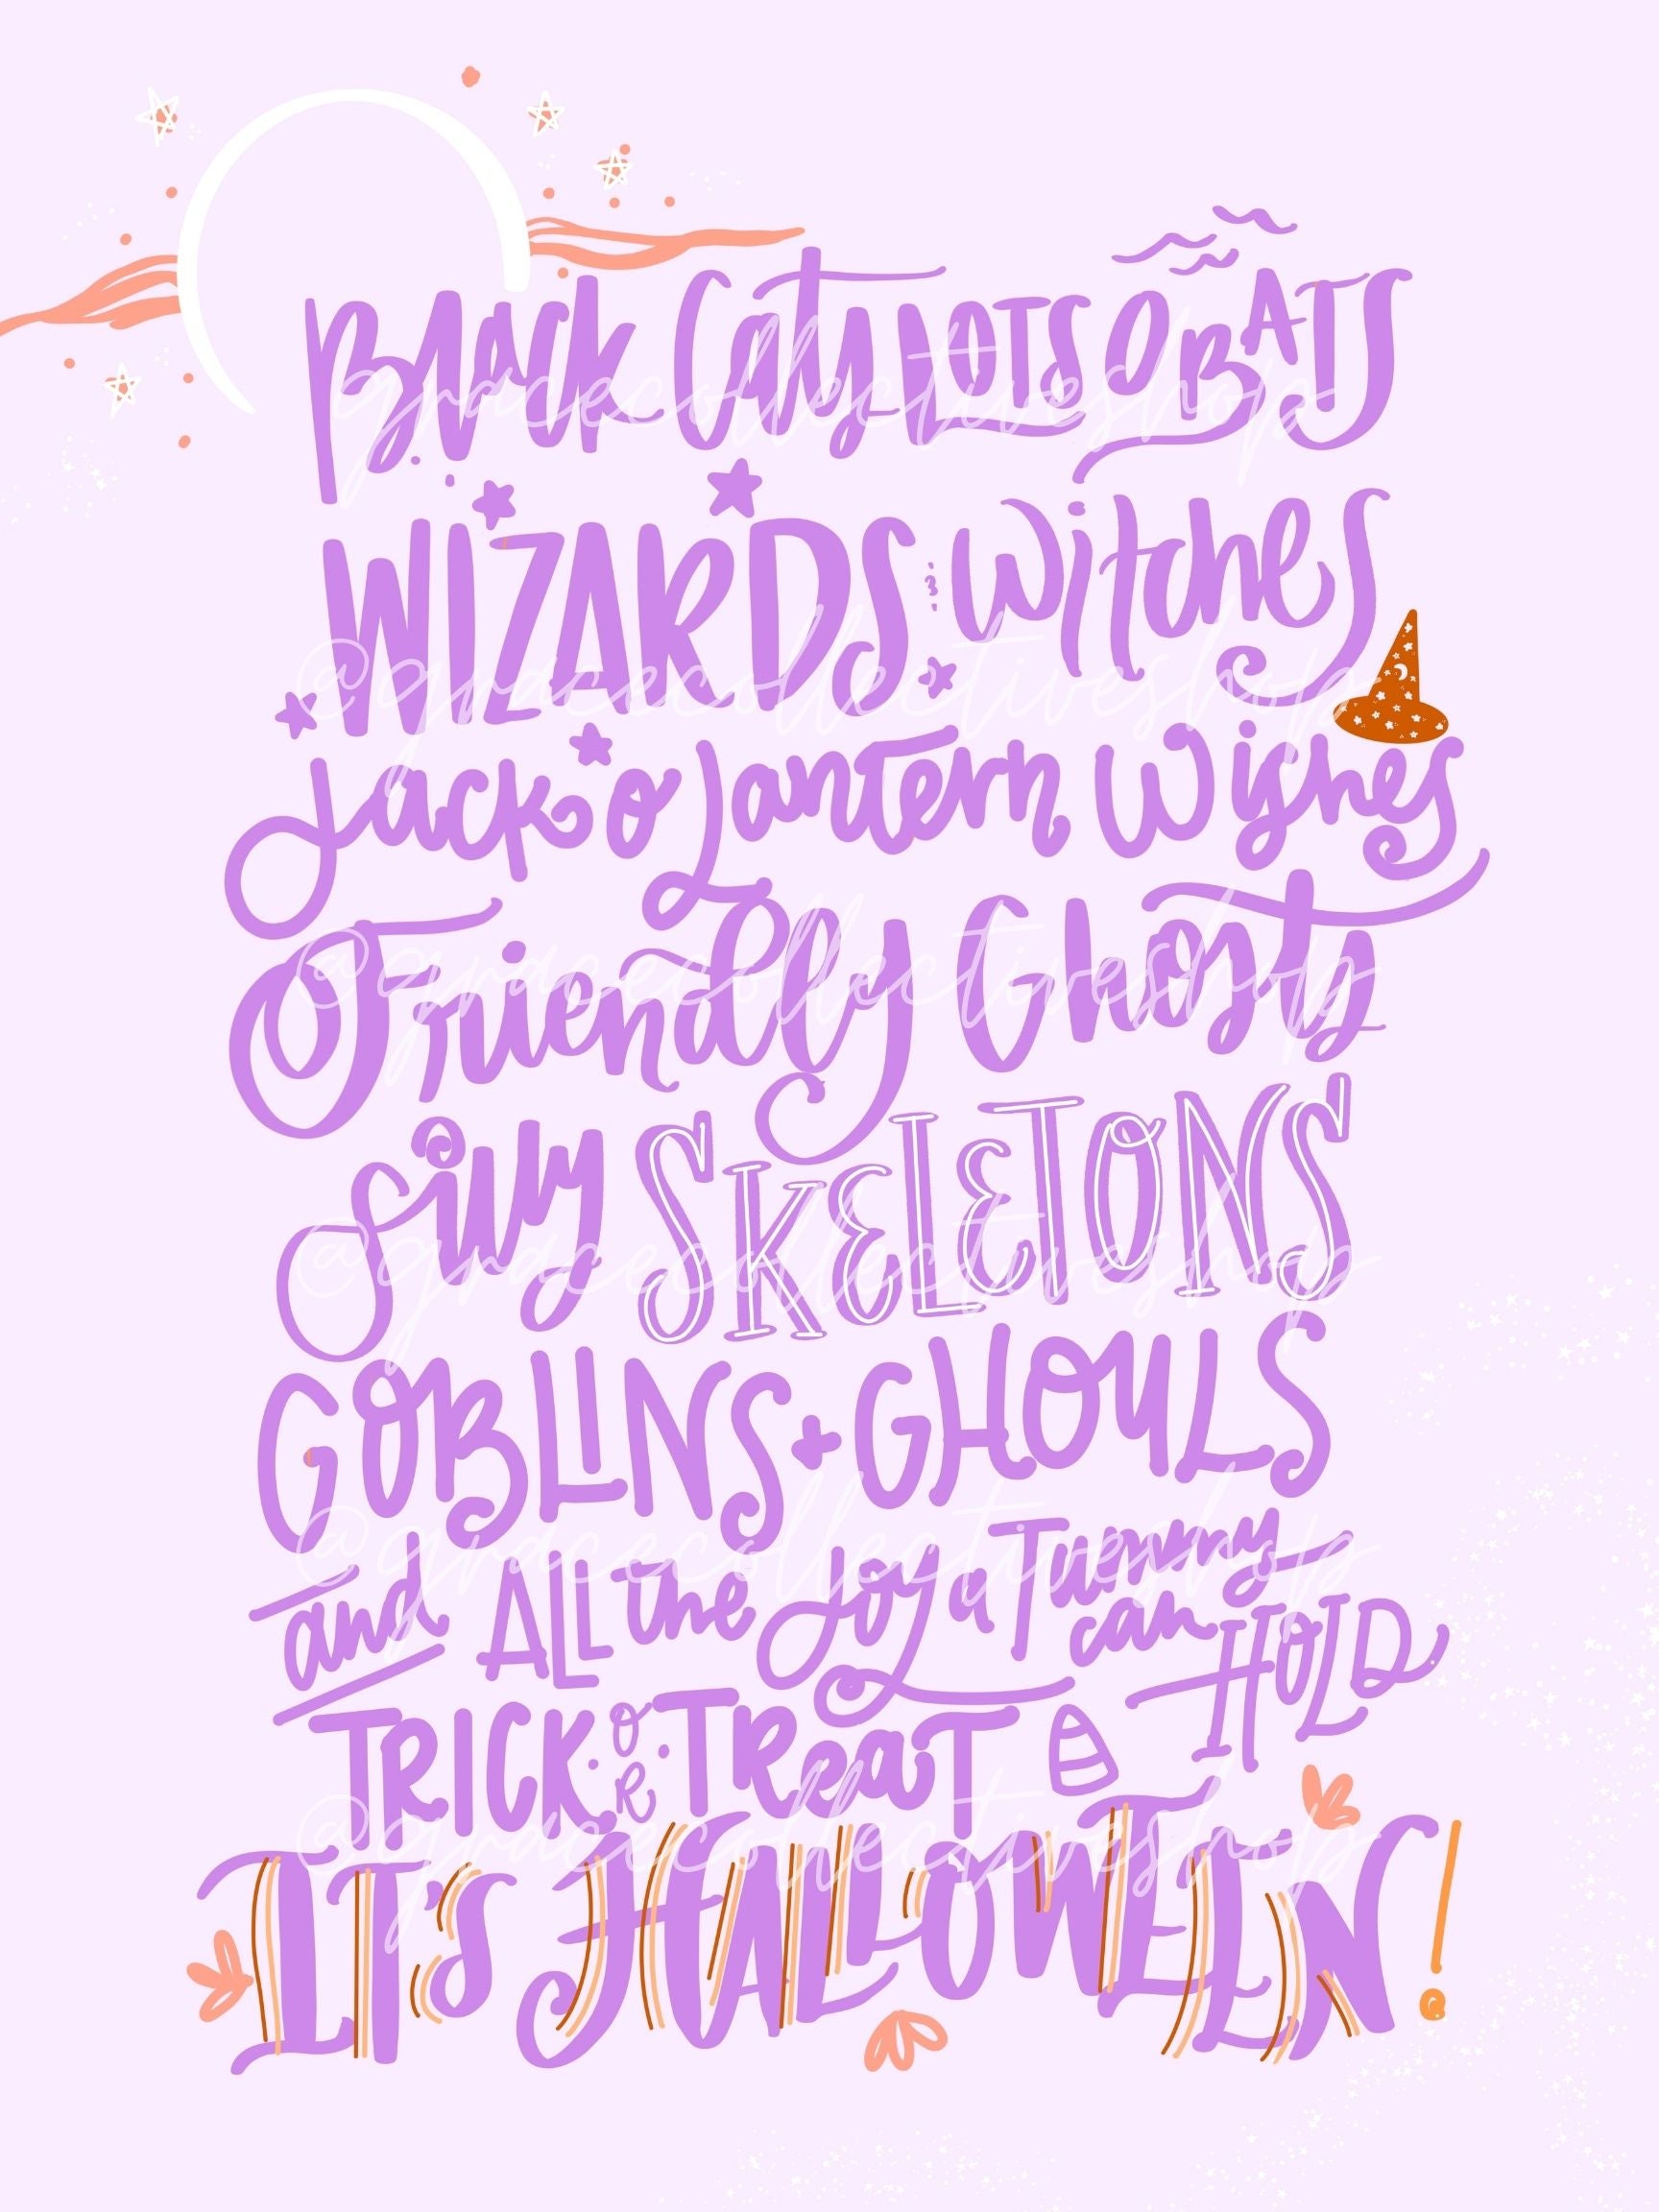 Black Cats LOTS O BATS
gracecollectiveshop
WIZARDS witches
@gracecollectiveshop
Jack o Lantern Wishes
O Friendly Ghosts
@gracecollectiveshop
Silly SKELETONS
@gracecollectiveshop
GOBLINS + GHOULS
@gracecollectiveshop
and ALL the Joy a Tummy can HOLD
TRICK OR TReaT
@gracecollectiveshop
IT'S HALLOWEEN!